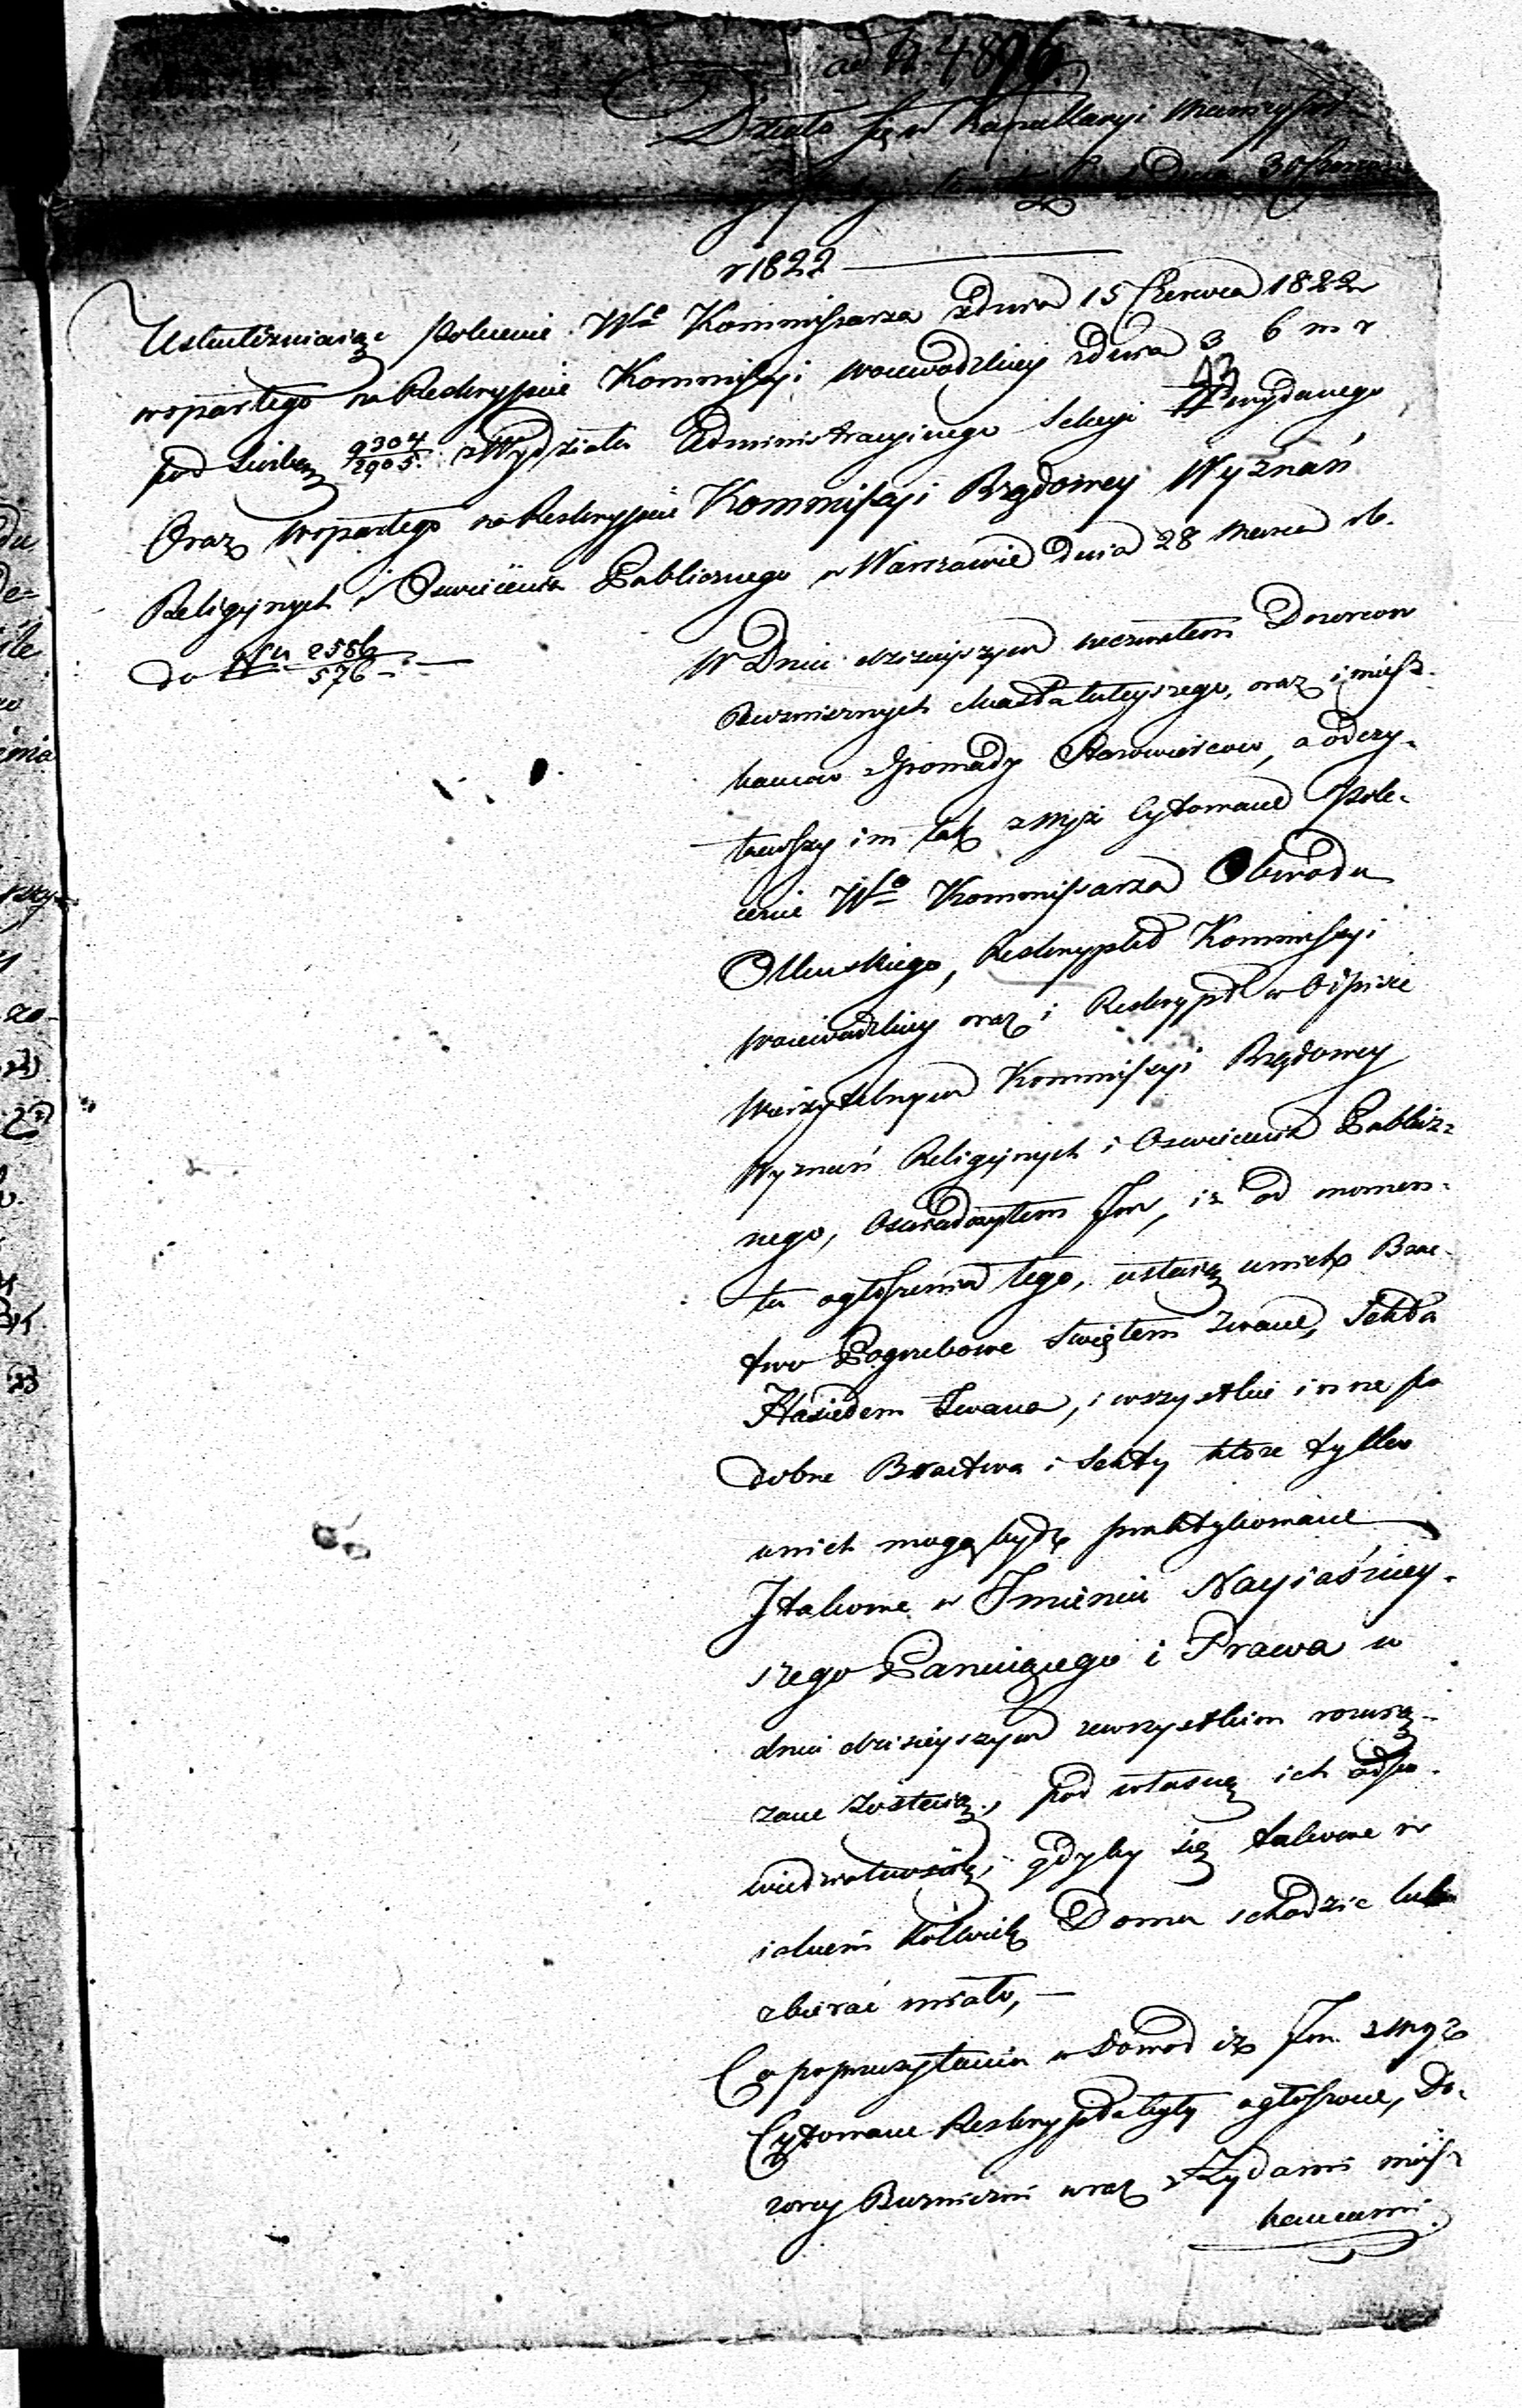 ad N. 4896
Działo się w Kancellaryi
Dnia 30
r 1822
Uskuteczniaiąc Polecenie Wo Kommissarza z dnia 15 Czerwca 1822
wspartego na Reskrypcie Kommissyi woiewodzkiey z dnia 3 b m r
pod Liczbą 9304/2905. z Wydziału Administracyinego Sekcyi wydanego
Oraz wspartego na Reskrypcie Kommissyi Rządowey Wyznań
Religiynych i Oswiecenia Publicznego w Warszawie Dnia 28 Marca rb.
do Nru 2586/576 -
W Dniu dzisieyszym wezwałem Dozorcow
Buznicznych Miasta tuteyszego, oraz i miesz-
kancow z Gromady Starowiercow, a odczy-
tawszy im tak zwyż Cytowane Pole-
cenie Wo Kommissarza Obwodu
Olkuskiego, Reskrypted Kommissyi
Woiewodzkiey oraz i Reskrypt w Odpisie
Wierzytelnym Kommissyi Rządowey
Wyznań Religiynych i Oswiecenia Publicz-
nego, Oswiadczyłem Im, iz od momen-
tu ogłoszenia tego, ustaią u nich Brac-
two Pogrzebowe Swiętem zwane, Sekta
Hasidem Zwana, i wszystkie inne po
dobne Bractwa i Sekty ktore tylko
u nich mogą bydź praktykowane
I takowe w Imieniu Nayiaśniey-
szego Panuiącego i Prawa w
dniu dzisieyszym zewszystkim rozwią-
zane zostaią, pod własną ich odpo-
wiedzialnością, gdyby się takowe w
iakiem kolwiek Domu schodzic lub
zbierać miało, -
Co po przeczytaniu w Dowod iż Im zwyż
Cytowane Reskrypta były ogłoszone, Do-
zorcy Buzniczni wraz z Żydami miesz-
kancami.